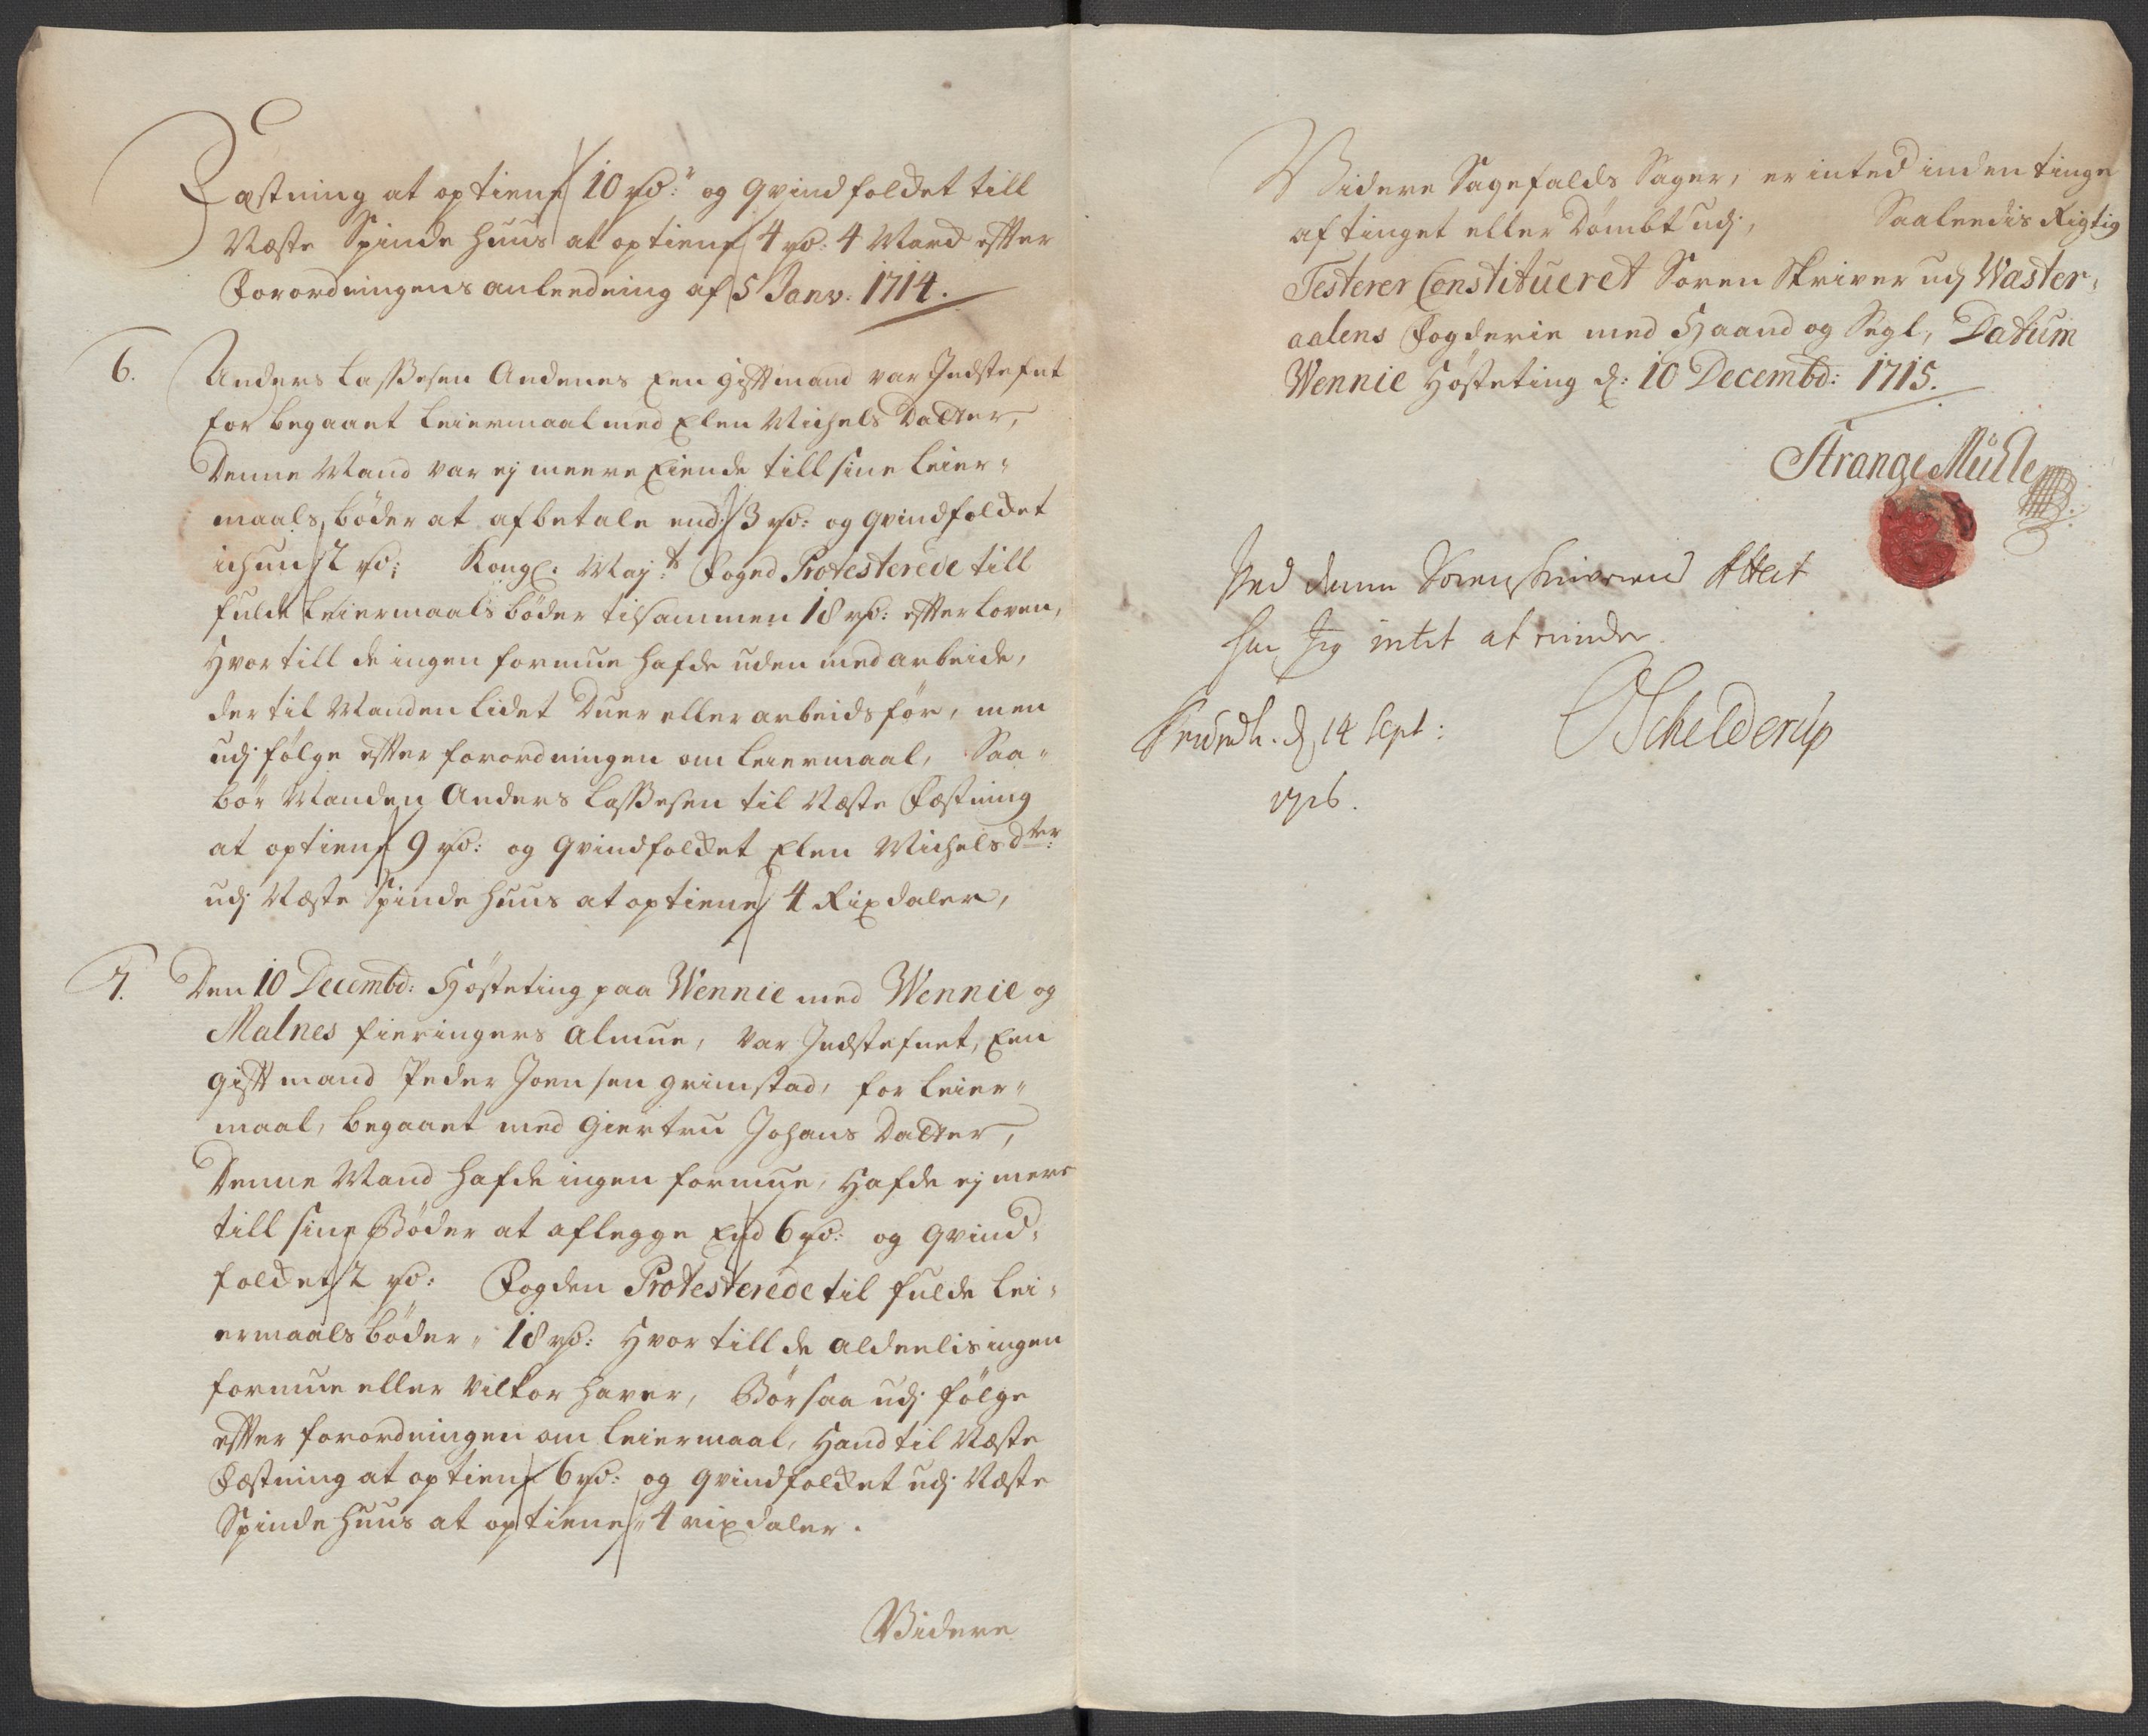 Fæstning at optiene 10 rd: og qvindfolcket till
Næste Spinde huus at optiene 4 rd: 4 Marck effter
Forordningens anleedning af 5 Janv: 1714.
6. Anders Lassesen Andenes Een gifft mand var Indstefnt
for begaaet leiermaal med Elen Michels Datter,
Denne Mand var ej meere Eiende till sine leier-
maals bøder at afbetale end 3 rd: og qvindfolcket
ichun 2 rd: Kongl. May:ts Foged Protesterede till
fulde leiermaals bøder tilsammen 18 rd: effter loven,
Hvor till de ingen formue hafde uden med arbeide,
der til Manden lidet Duer eller arbeids før, men
udj følge effter forordningen om leiermaal, Saa
bør Manden Anders Lassesen til Næste Fæstning
at optiene 9 rd: og qvindfolcket Elen Michelsdter:
udj Næste Spinde huus at optiene 4 Rixdaler,
7. Den 10 Decembd: Høsteting paa Wennie med Wennie og
Malnes fieringers Almue, var Indstefnet, Een
gifft mand Peder Joensen Grimstad, for leier-
maal, begaaet med Giertru Johans Datter,
Denne Mand hafde ingen formue, Hafde ej mere
till sine Bøder at aflegge End 6 rd: og qvind-
folcket 2 rd: Fogden Protesterede til fulde lei-
ermaals bøder 18 rd: Hvor till de aldeelis ingen
formue eller vilkor haver, Bør saa udj følge
effter forordningen om leiermaal, Hand til Næste
Fæstning at optiene 6 rd: og qvindfolcket udj Næste
Spinde huus at optiene 4 rixdaler.
Videre
Videre Sagefalds Sager, er inted inden tinge
af tinget eller Dømbt udj, Saaleedis Rigtig
Testerer Constitueret Soren Skriver udj Waster-
aalens Fogderie med Haand og Segl, Datum
Wennie Høsteting d: 10 Decembd: 1715.
Strange Müller
Ved denne Sorenskriverens Attest
har Jeg intet at minde
Trundh. d 14 Sept:
1716.
Schelderup